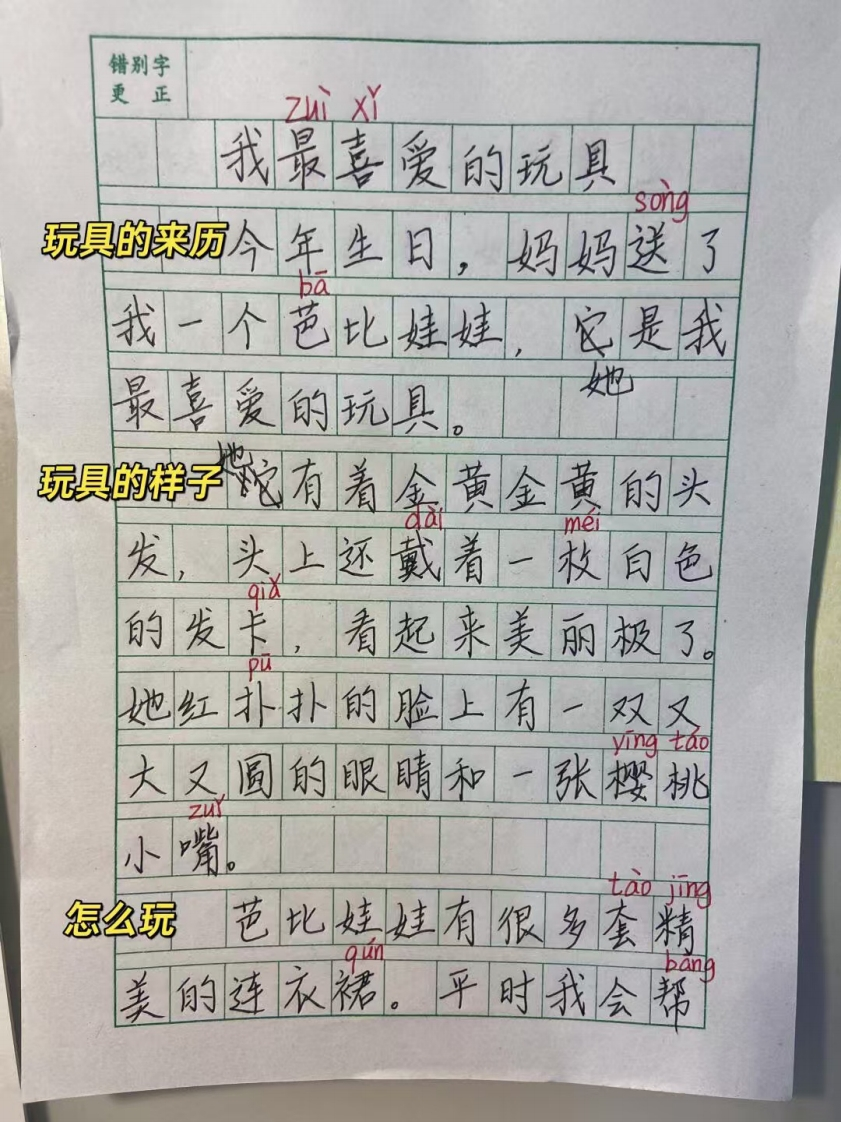 错别字
更正
zuì xǐ
我最喜爱的玩具
sòng
玩具的来历
今年生日，妈妈送了
bā
我一个芭比娃娃，它是我
她
最喜爱的玩具。
玩具的样子
她
有着金黄金黄的头
dài méi
发，头上还戴着一枚白色
qiǎ
的发卡，看起来美丽极了。
pū
她红扑扑的脸上有一双又
yīng táo
大又圆的眼睛和一张樱桃
zuǐ
小嘴。
tào jīng
怎么玩
芭比娃娃有很多套精
qún bāng
美的连衣裙。平时我会帮